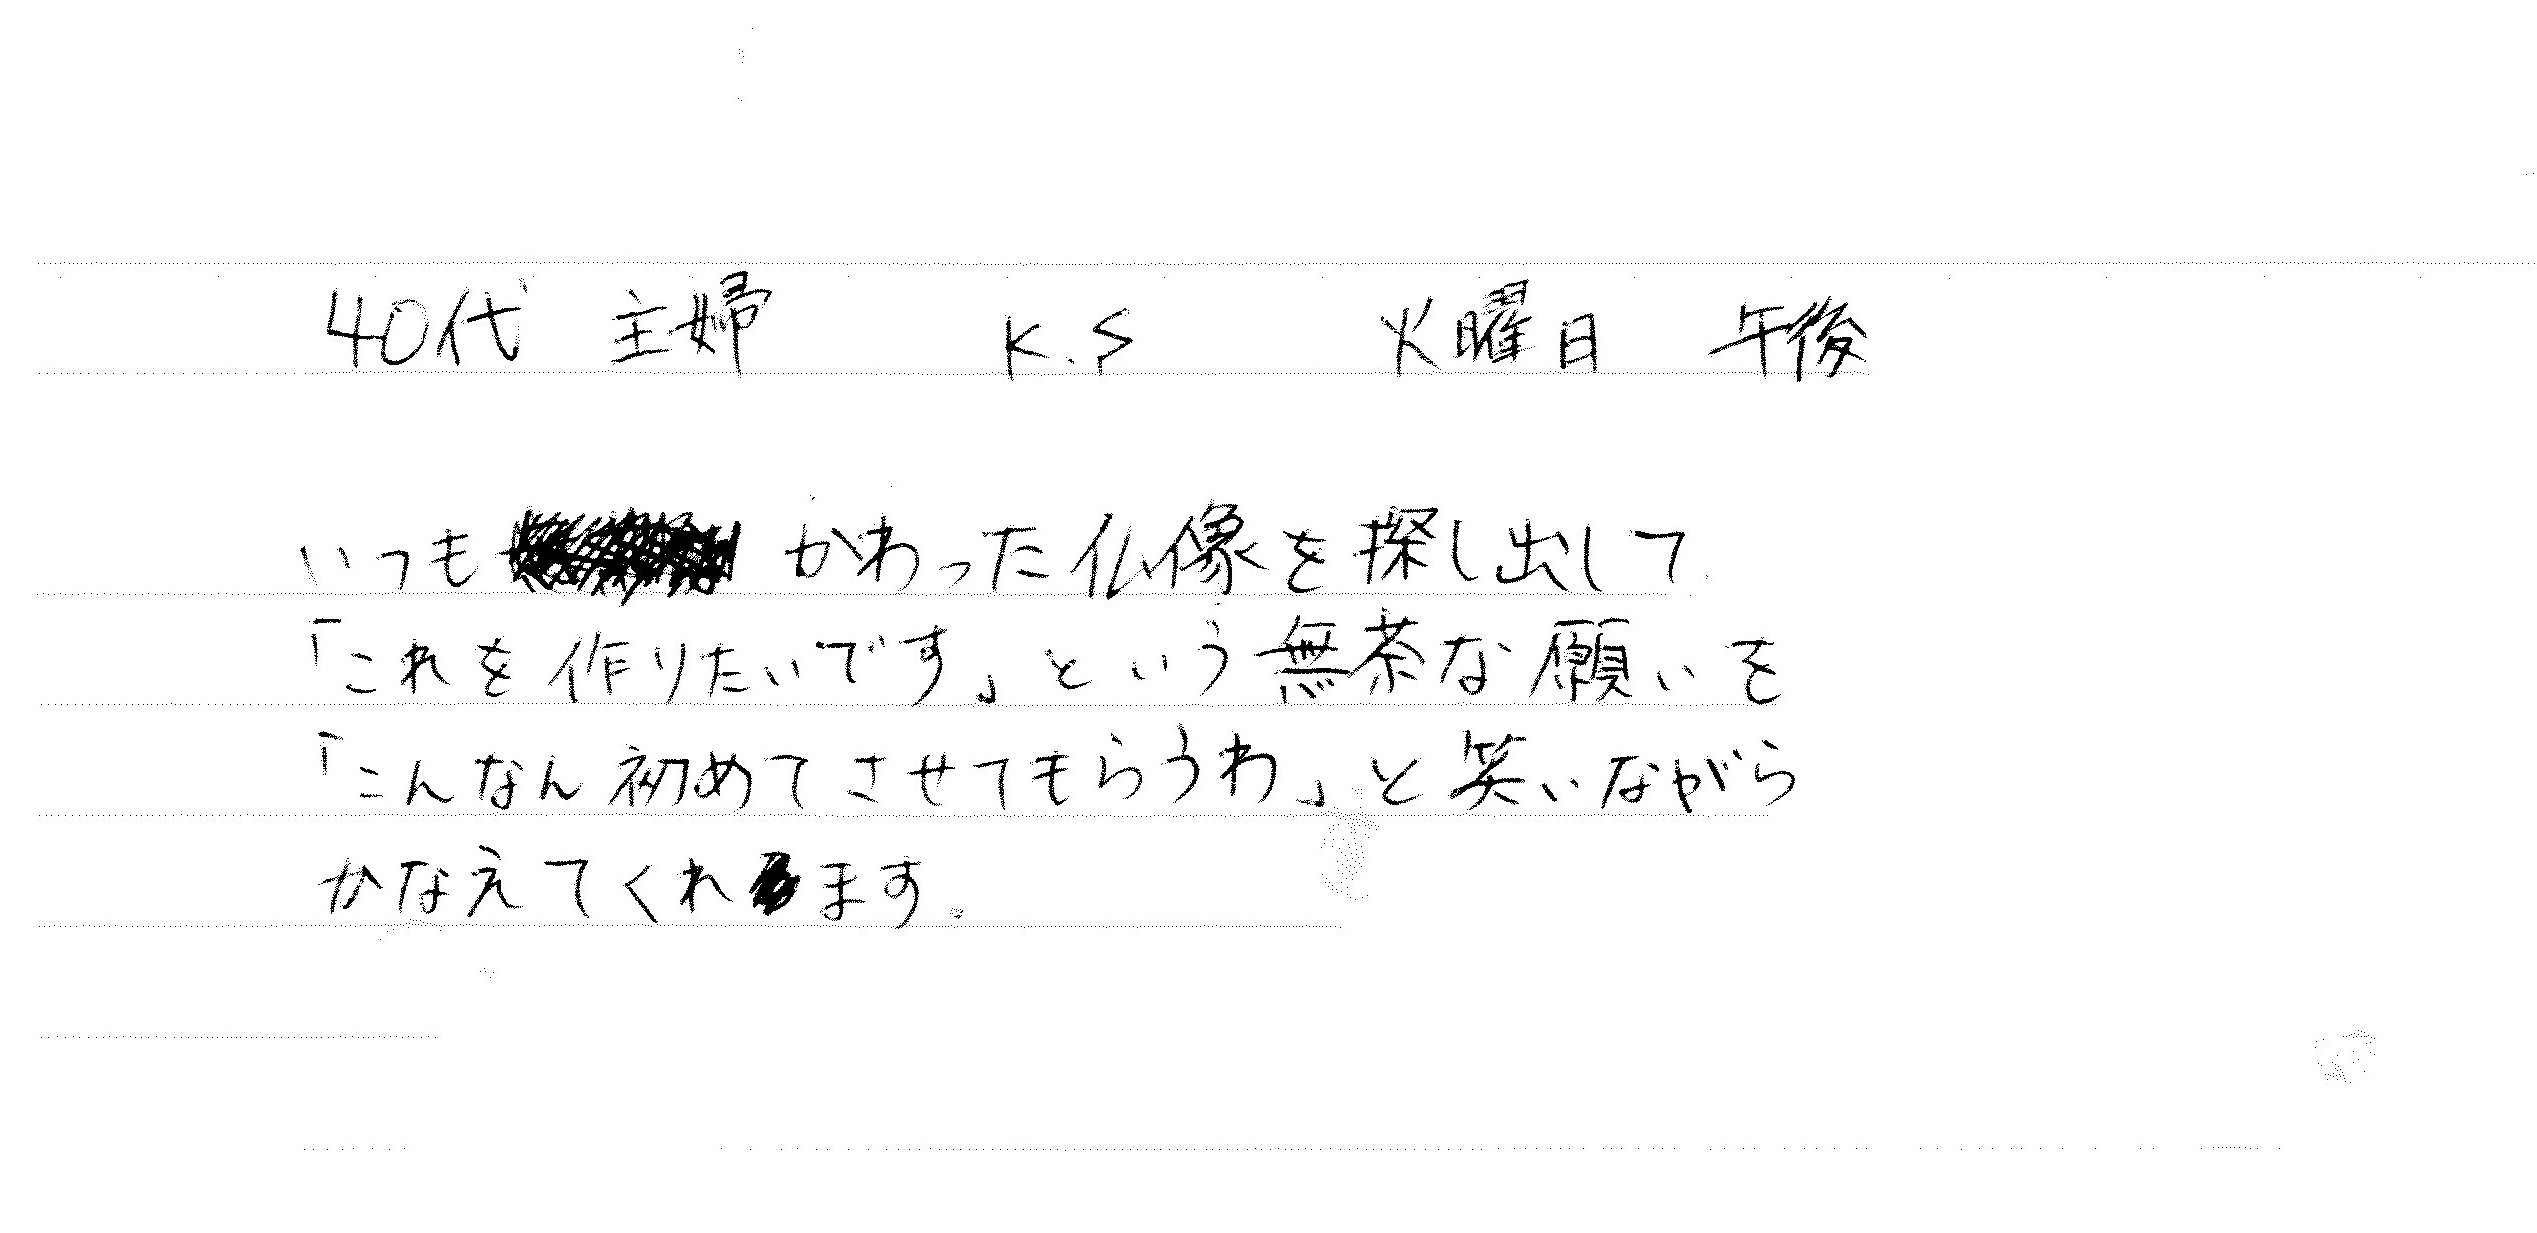 40代 主婦 K.S 火曜日 午後
いつも かわった仏像を探し出して
「これを作りたいです」という無茶な願いを
「こんなん初めてさせてもらうわ」と笑いながら
かなえてくれます。